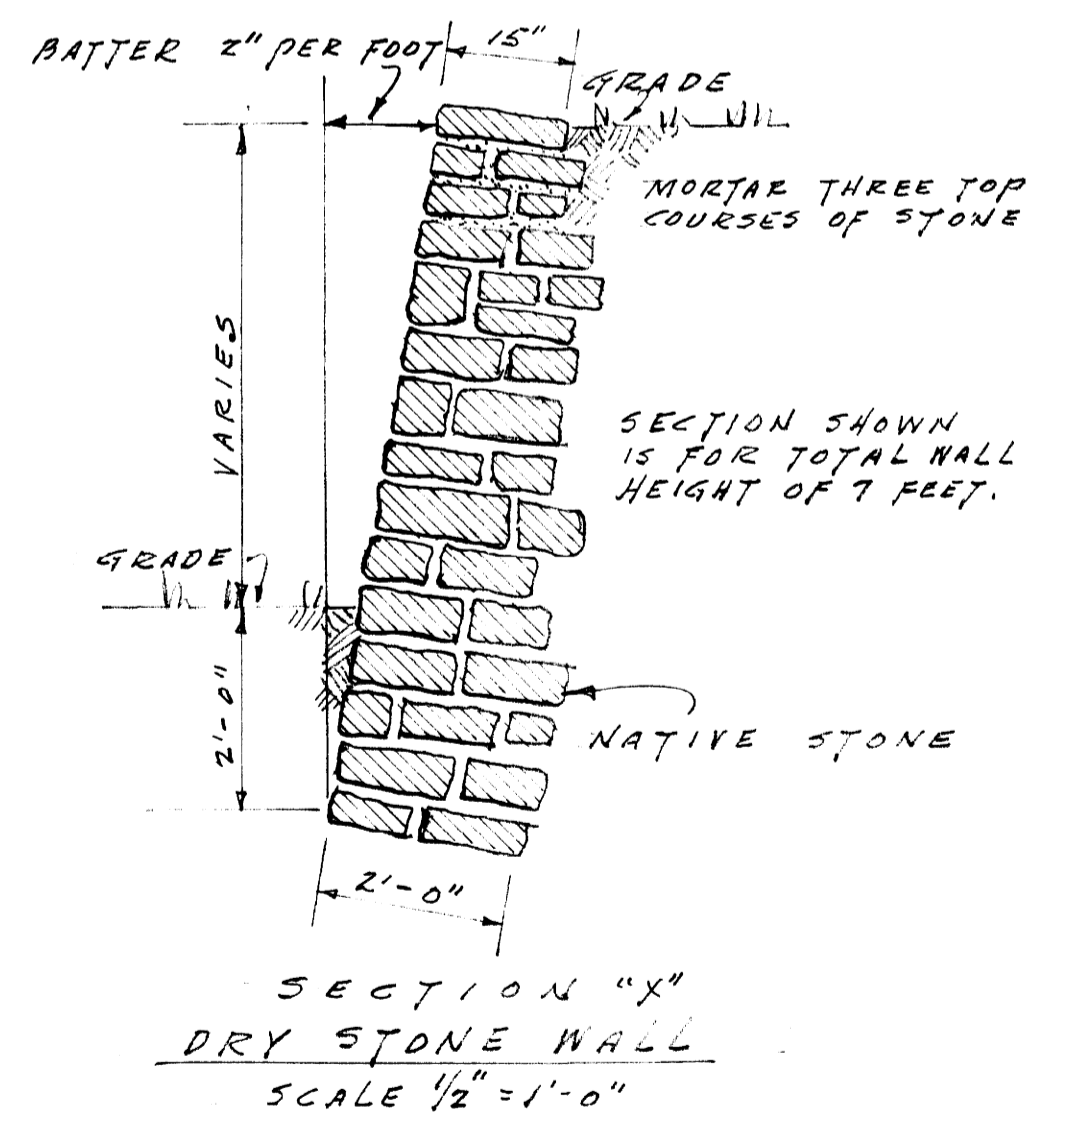 BATTER 2" PER FOOT
15"
GRADE
MORTAR THREE TOP
COURSES OF STONE
VARIES
SECTION SHOWN
IS FOR TOTAL WALL
HEIGHT OF 7 FEET.
GRADE
2'-0"
NATIVE STONE
2'-0"
SECTION "X"
DRY STONE WALL
SCALE 1/2" = 1'-0"